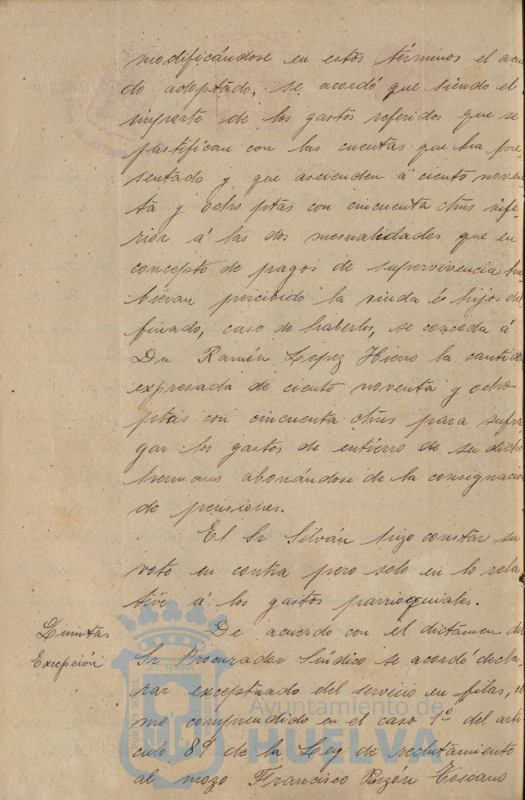 modificándose en estos términos el acuer
do adoptado, se acordó que siendo el
importe de los gastos referidos que se
justifican con las cuentas que ha pre
sentado y que ascienden á ciento noven
ta y ocho ptas con cincuenta ctms infe-
rior á las dos mesualidades que en
concepto de pagos de supervivencia hu
bieran percibido la viuda é hijos del
finado, caso de haberlos, se conceda á
Dn Ramón Lopez Hierro la cantidad
expresada de ciento noventa y ocho
ptas con cincuenta ctms para sufra
gar los gastos de entierro de su dicho
hermano abonándose de la consignacion
de pensiones.
El Sr Silván hizo constar su
voto en contra pero solo en lo rela
tivo á los gastos parroquiales.
Quintas
Excepción
De acuerdo con el dictámen del
Sr Procurador Síndico se acordó decla
rar exceptuado del servicio en filas, co
mo comprendido en el caso 1º del artí
culo 89 de la Ley de reclutamiento
al mozo Francisco Rezón Toscano
Ayuntamiento de
HUELVA